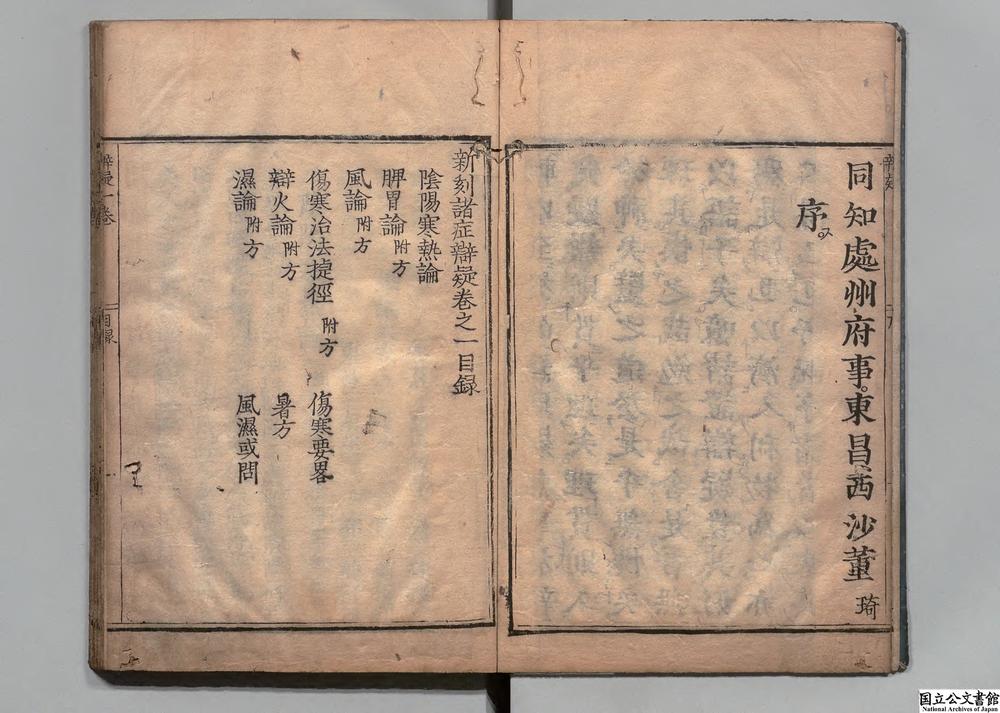 同知處州府事東昌西沙董琦
序
新刻諸症辯疑卷之一目錄
陰陽寒熱論
脾胃論 附方
風論 附方
傷寒治法捷徑 附方 傷寒要畧
辯火論 附方 暑方
濕論 附方 風濕或問
国立公文書館
National Archives of Japan